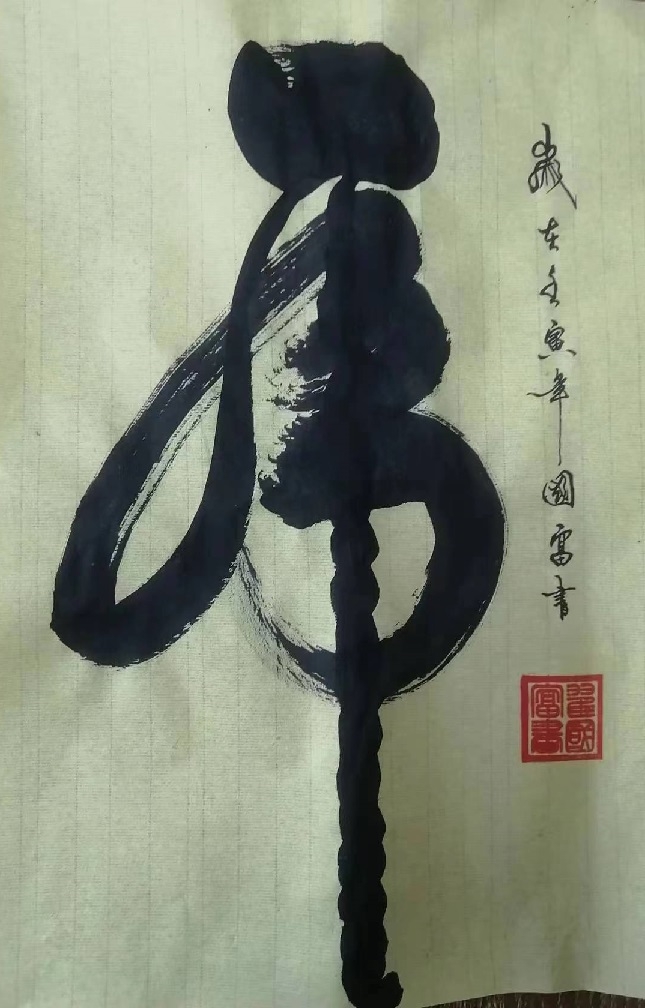 虎
歲在壬寅年國富書
翟國富書